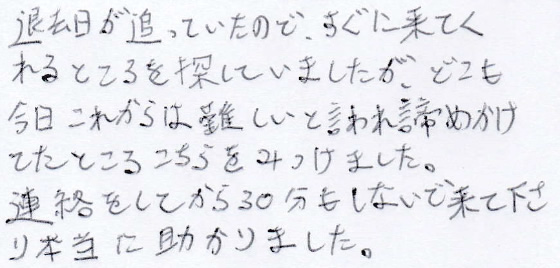 退去日が追っていたので、すぐに来てく
れるところを探していましたが、どこも
今日これからは難しいと言われ諦めかけ
てたところこちらをみつけました。
連絡をしてから30分もしないで来て下さ
り本当に助かりました。